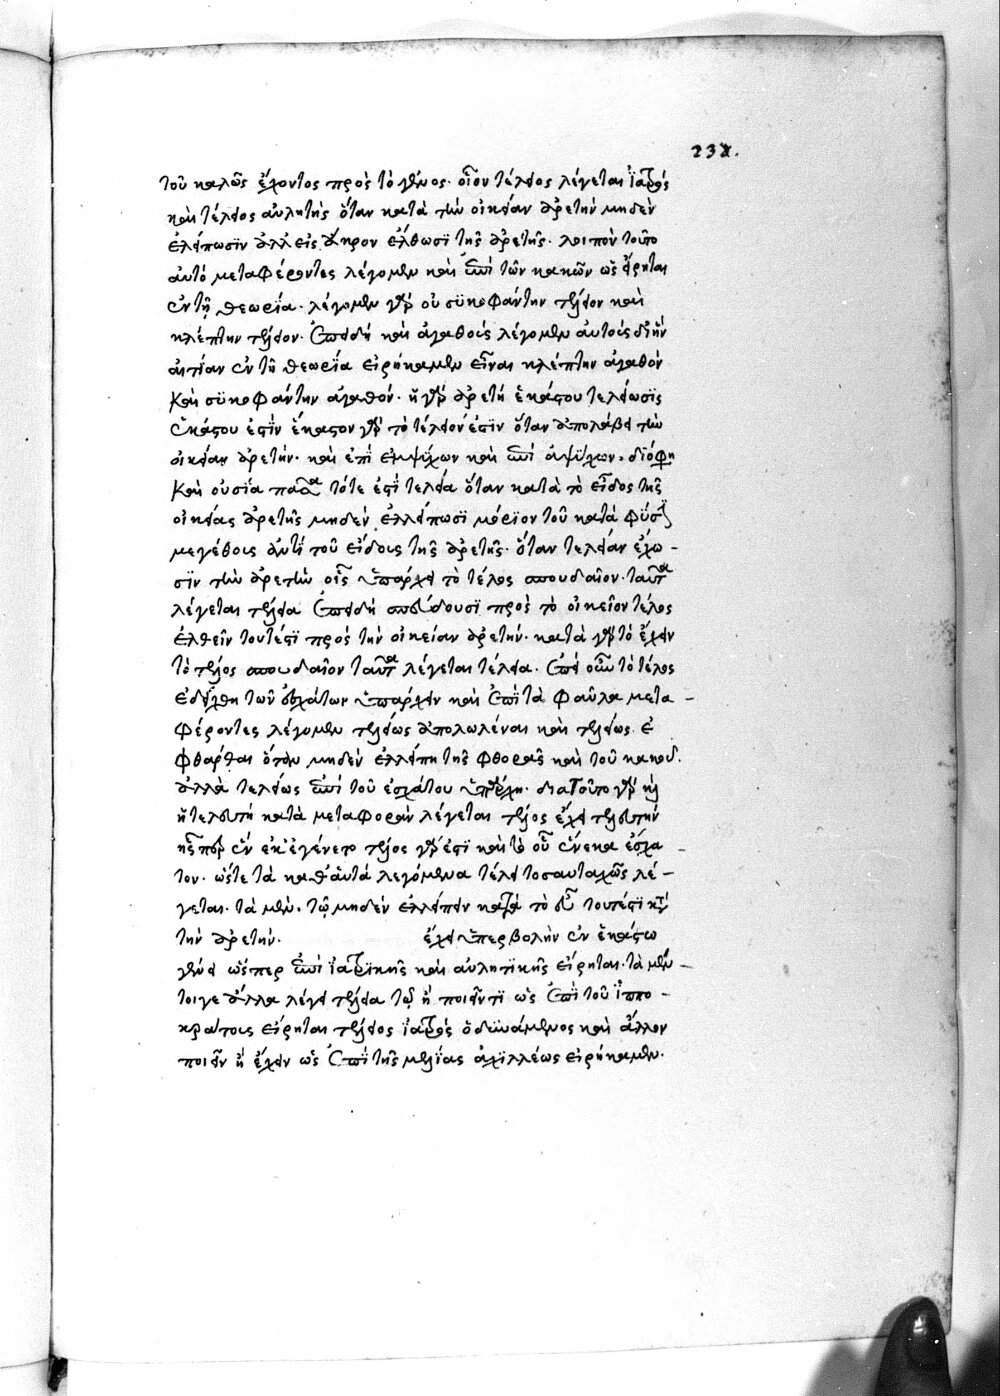 232.
τοῦ καλῶς ἔχοντος πρὸς τὸ γένος. οἷον τέλειος λέγεται ἰατρός
καὶ τέλειος αὐλητὴς ὅταν κατὰ τὴν οἰκείαν ἀρετὴν μηδὲν
ἐλλείπωσϊν ἀλλ εἰς ἄκρον ἔλθωσϊ τῆς ἀρετῆς. λοιπὸν τοῦτο
αὐτὸ μεταφέροντες λέγομεν καὶ ἐπὶ τῶν κακῶν ὡς εἴρηται
ἐν τῇ θεωρία. λέγομεν γὰρ οὐ συκοφάντην τέλειον καὶ
κλέπτην τέλειον. ἐπειδὴ καὶ ἀγαθοὺς λέγομεν αὐτοὺς δι ἣν
αἰτίαν ἐν τῇ θεωρΐα εἰρήκαμεν εἶναι κλέπτην ἀγαθὸν
καὶ συκοφάντην ἀγαθόν. ἡ γὰρ ἀρετὴ ἑκάστου τελείωσϊς
ἑκάστου ἐστὶν ἕκαστον γὰρ τὸ τέλειόν ἐστϊν ὅταν ἀπολάβη τὴν
οἰκείαν ἀρετήν. καὶ ἐπὶ ἐμψύχων καὶ ἐπὶ ἀψύχων. διό φη
καὶ οὐσία πᾶσα τότε ἐστὶ τελεία ὅταν κατὰ τὸ εἶδος τῆς
οἰκείας ἀρετῆς μηδὲν ἐλλείπωσι μόριον τοῦ κατὰ φύσιν
μεγέθους ἀντὶ τοῦ εἴδους τῆς ἀρετῆς. ὅταν τελείαν ἔχω-
σϊν τὴν ἀρετὴν οἷς ὑπάρχει τὸ τέλος σπουδαῖον. ταῦτα
λέγεται τέλεια ἐπειδὴ σπεύδουσι πρὸς τὸ οἰκεῖον τέλος
ἐλθεῖν τουτέστι πρὸς τὴν οἰκείαν ἀρετήν. κατὰ γὰρ τὸ ἔχειν
τὸ τέλος σπουδαῖον ταῦτα λέγεται τέλεια. ἐπεὶ οὖν τὸ τέλος
ἐδείχθη τῶν ἐσχάτων ὑπάρχειν καὶ ἐπὶ τὰ φαῦλα μετα-
φέροντες λέγομεν τελείως ἀπολωλέναι καὶ τελείως ἐ
φθάρθαι ὅταν μηδὲν ἐλλείπη τῆς φθορᾶς καὶ τοῦ κακοῦ.
ἀλλὰ τελείως ἐπὶ τοῦ ἐσχάτου ὑπάρχη. διατοῦτο γὰρ καὶ
ἡ τελευτὴ κατὰ μεταφορὰν λέγεται τέλος ἔχει τελευτὴν
ἧσπερ ἕν εκ' ἐγένετο τέλος γάρ ἐστϊ καὶ τὸ οὗ ἕνεκα ἔσχα-
τον. ὥστε τὰ καθ αὑτὰ λεγόμενα τέλεια τοσαυταχῶς λέ-
γεται. τὰ μὲν. τῷ μηδὲν ἐλλείπειν κατὰ τὸ εὖ τουτέστϊ κατὰ
τὴν ἀρετήν. ἔχει ὑπερβολὴν ἐν ἑκάστω
γένει ὥσπερ ἐπὶ ἰατρϊκῆς καὶ αὐλητϊκῆς εἴρηται. τὰ μέν-
τοιγε ἄλλα λέγει τέλεια τῷ ἢ ποιεῖν τϊ ὡς ἐπὶ τοῦ ἱππο-
κράτους εἴρηται τέλειος ἰατρὸς ὁ δεϊνάμενος καὶ ἄλλον
ποιεῖν ἢ ἔχειν ὡς ἐπὶ τῆς μελίας ἀχϊλλέως εἰρήκαμεν.